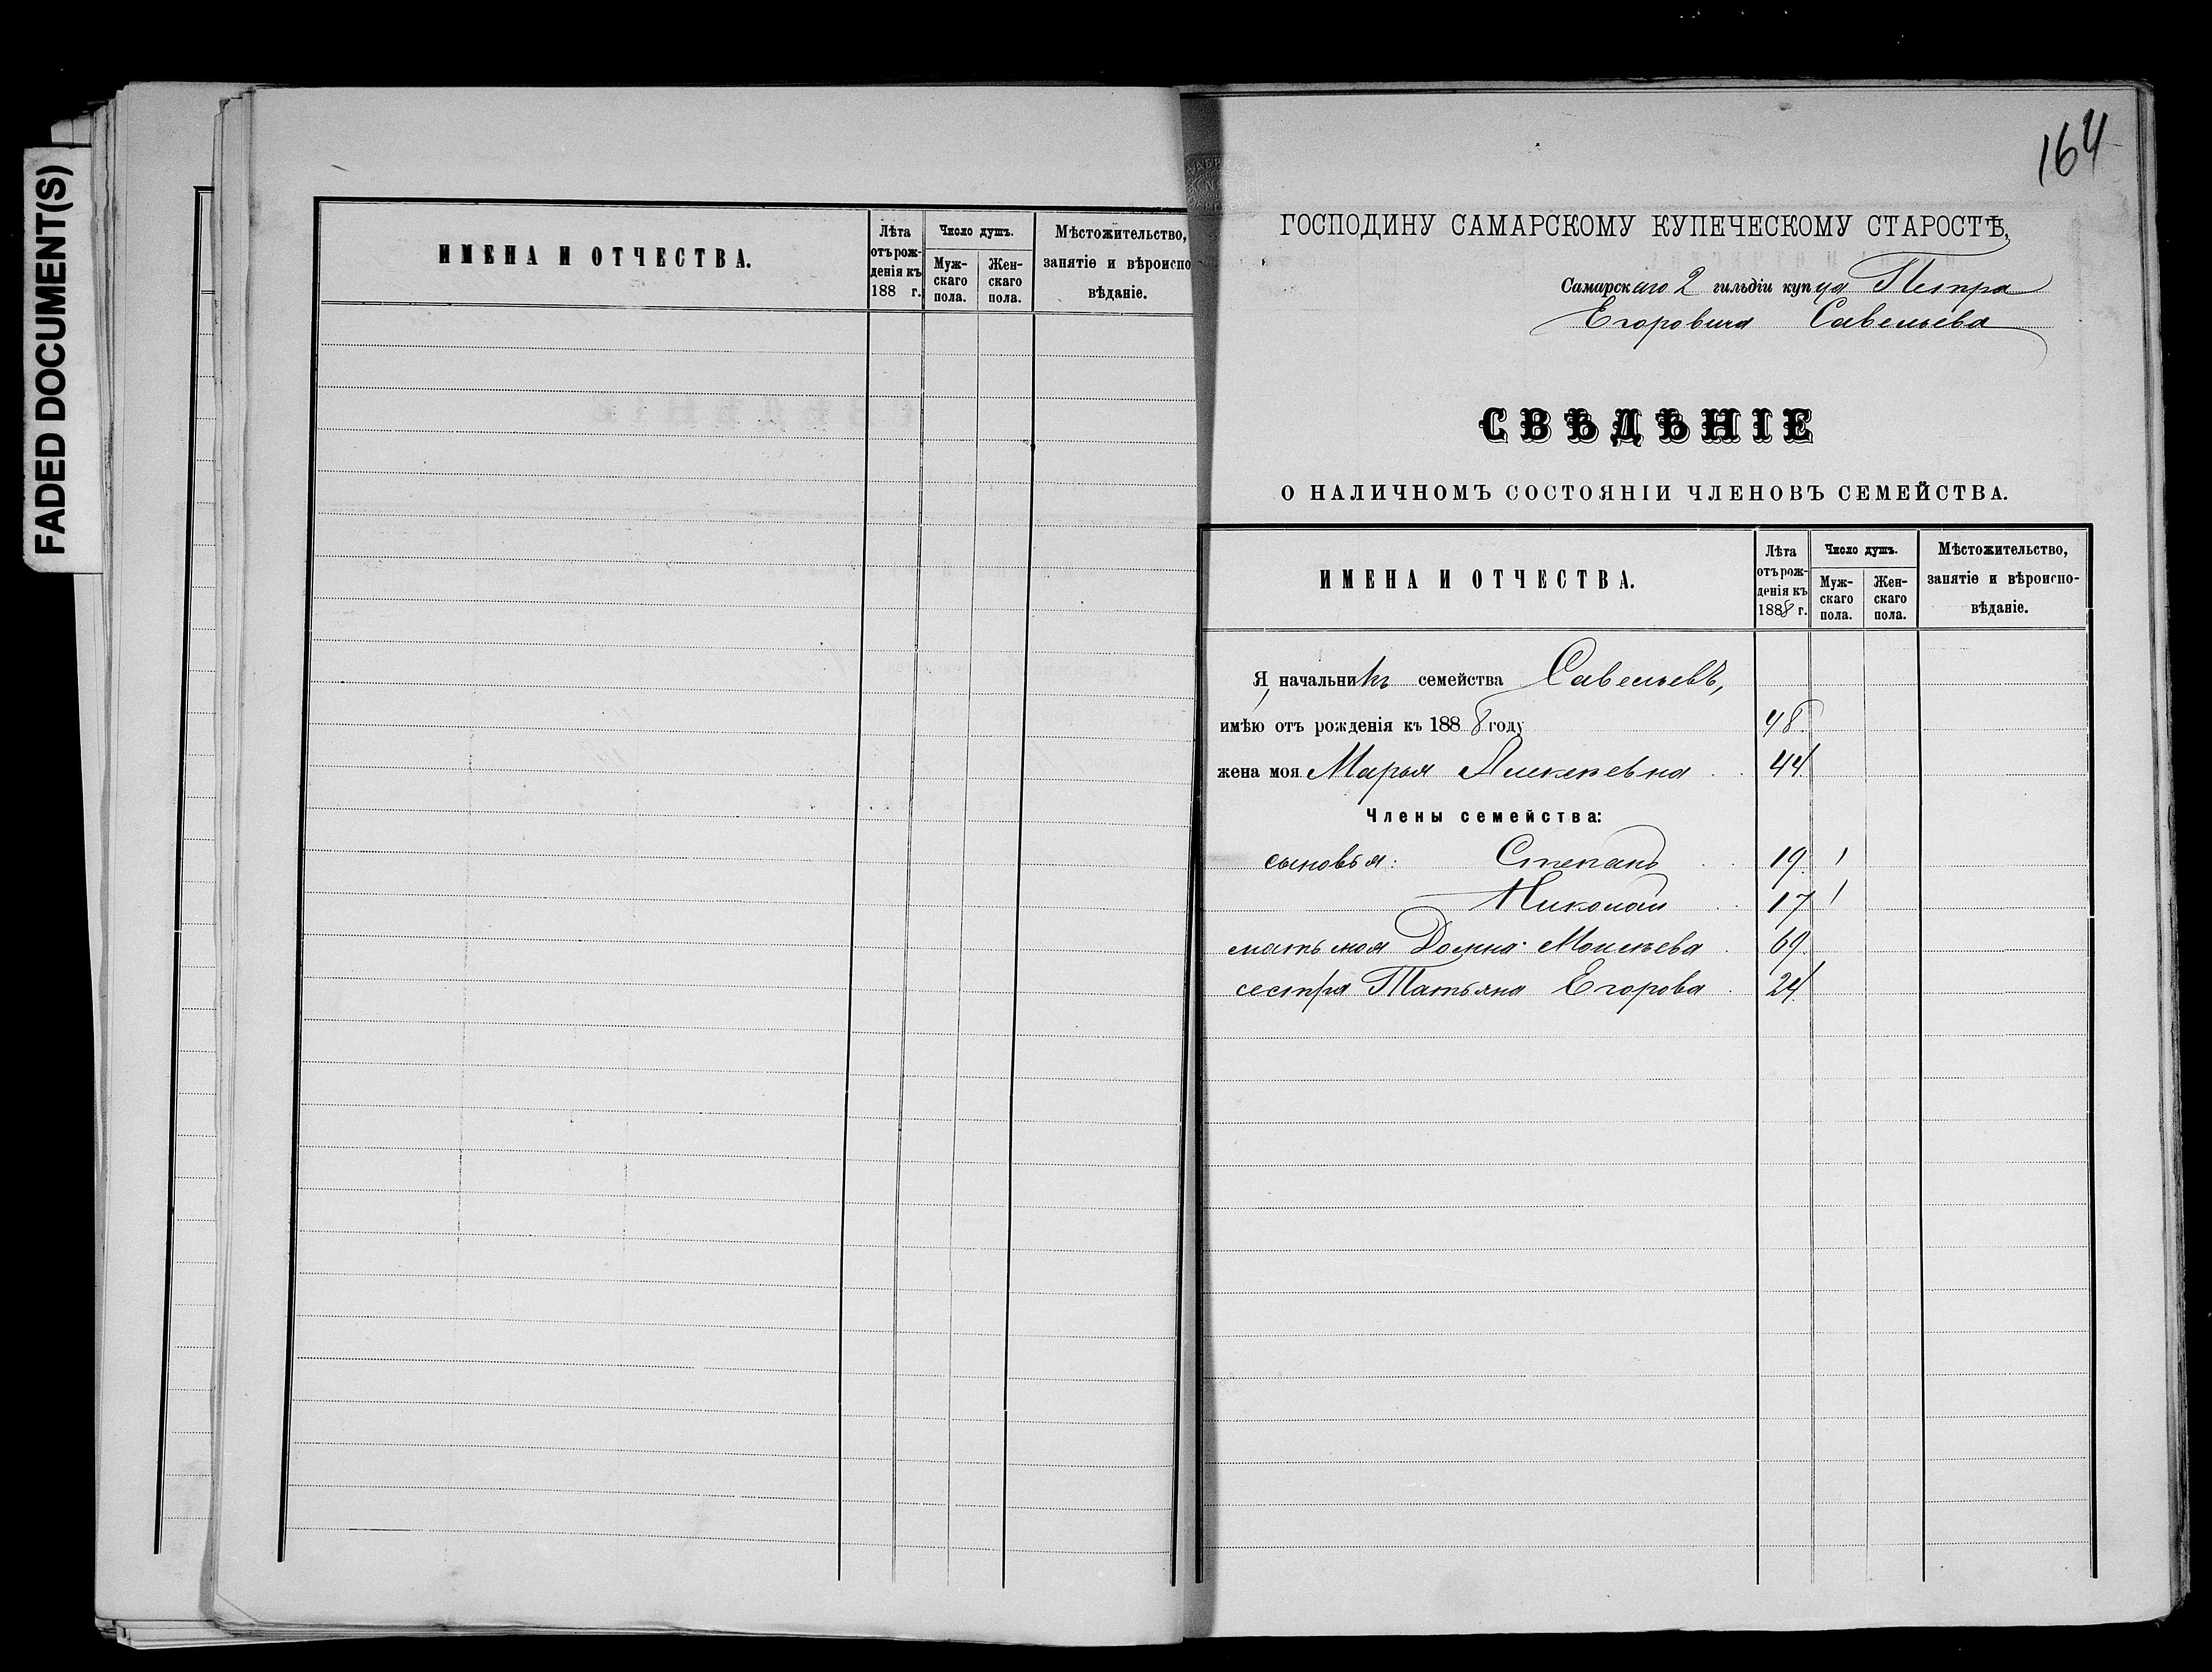 FADED DOCUMENT(S)
ИМЕНА И ОТЧЕСТВА.
Лѣта отъ рожденія къ 188 г.
Число душъ.
Мужскаго пола.
Женскаго пола.
Мѣстожительство,
занятіе и вѣроиспо
вѣданіе.
164
ГОСПОДИНУ САМАРСКОМУ КУПЕЧЕСКОМУ СТАРОСТѢ,
Самарскаго 2 гильдіи купца Петра
Егоровича Савельева
СВѢДѢНІЕ
О НАЛИЧНОМЪ СОСТОЯНІИ ЧЛЕНОВЪ СЕМЕЙСТВА.
ИМЕНА И ОТЧЕСТВА.
Лѣта
отъ рож-
денія къ
1888 г.
Число душъ.
Муж-
скаго
пола.
Жен-
скаго
пола.
Мѣстожительство,
занятіе и вѣроиспо-
вѣданіе.
Я, начальникъ семейства Савельевъ,
имѣю отъ рожденія къ 1888 году 48.
жена моя Марья 44.
Члены семейства:
сыновья: Степанъ 19. 1
Николай 17 1
мать моя Домна Моисеева 69.
сестра Татьяна Егорова 24.